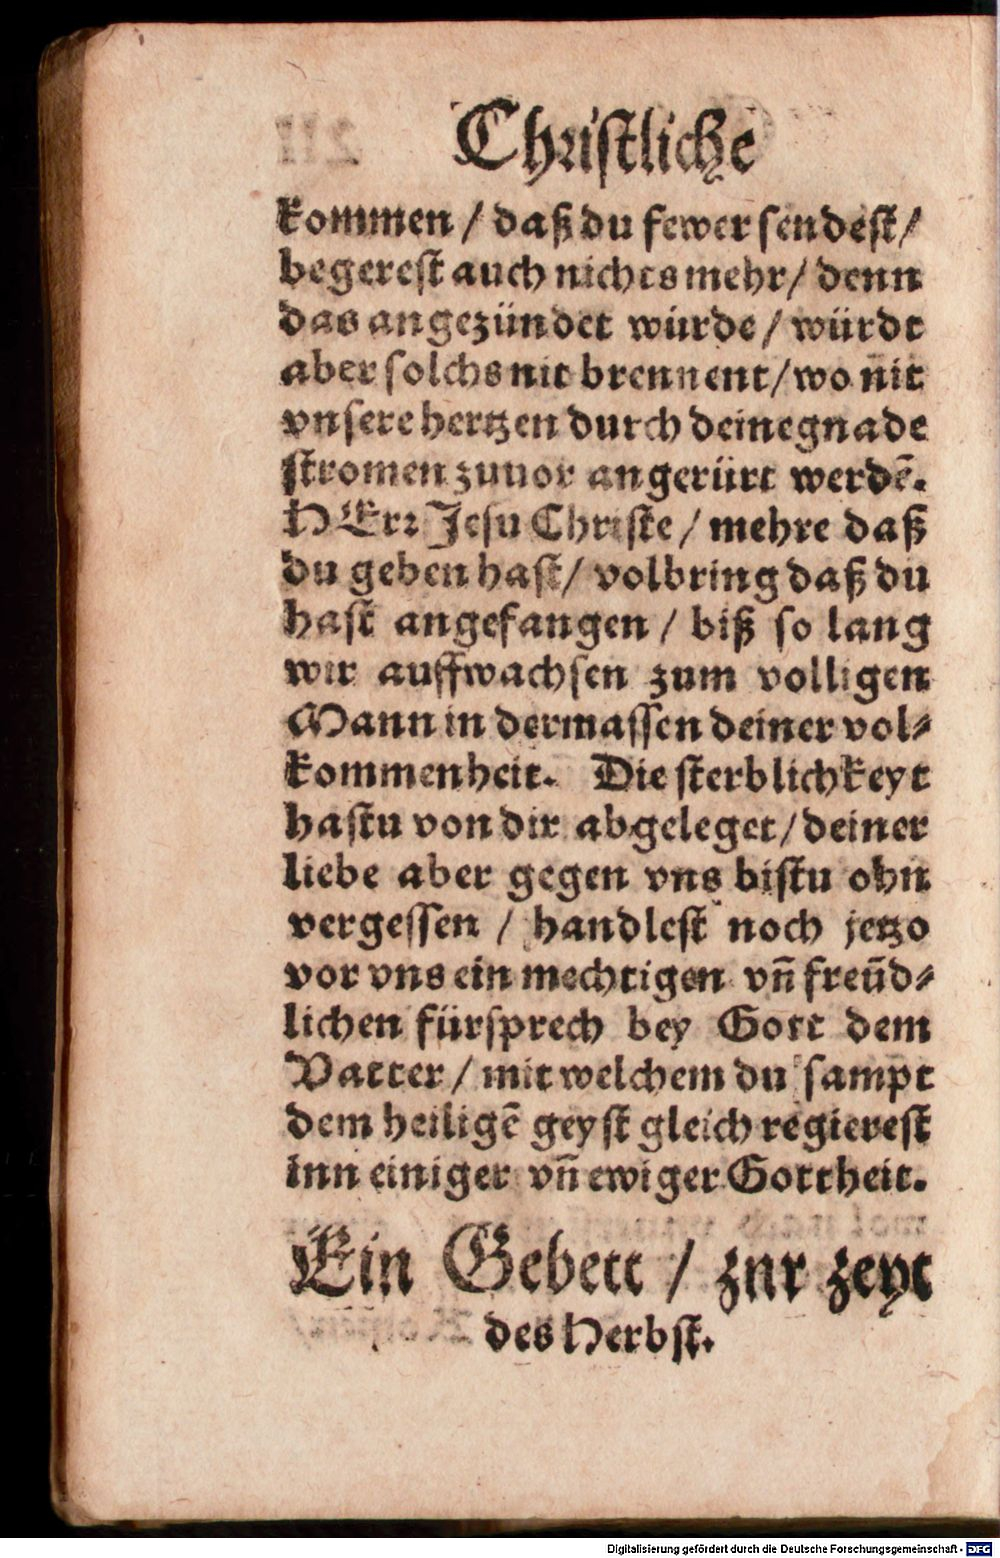 Christliche
kommen / daß du fewer sendest /
begerest auch nichts mehr / denn
das angezündet würde / würdt
aber solchs nit brennent / wo nit
vnsere hertzen durch deine gnade
stromen zuuor angerürt werdē.
HErr Jesu Christe / mehre daß
du geben hast / volbring daß du
hast angefangen / biß so lang
wir auffwachsen zum volligen
Mann in dermassen deiner vol⸗
kommenheit. Die sterblichkeyt
hastu von dir abgeleget / deiner
liebe aber gegen vns bistu ohn
vergessen / handlest noch jetzo
vor vns ein mechtigen vn̄ freūd⸗
lichen fürsprech bey Gott dem
Vatter / mit welchem du sampt
dem heiligē geyst gleich regierest
inn einiger vn̄ ewiger Gottheit.
Ein Gebett / znr zeyt
des Herbst.
Digitalisierung gefördert durch die Deutsche Forschungsgemeinschaft - DFG